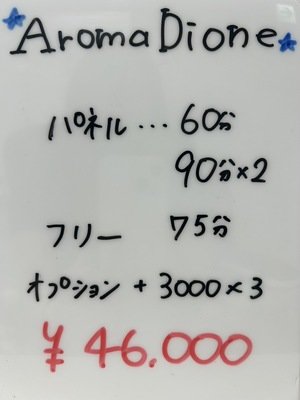 AromaDione
パネル…60分
90分×2
フリー 75分
オプション + 3000×3
¥46.000